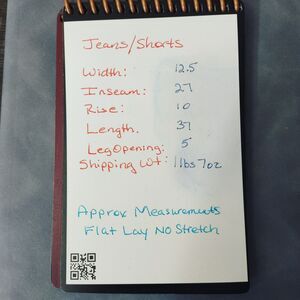 Jeans/Shorts
Width: 12.5
Inseam: 27
Rise: 10
Length. 37
Leg Opening: 5
Shipping Wt: 1 lbs 7 oz
Approx Measurements
Flat Lay No Stretch